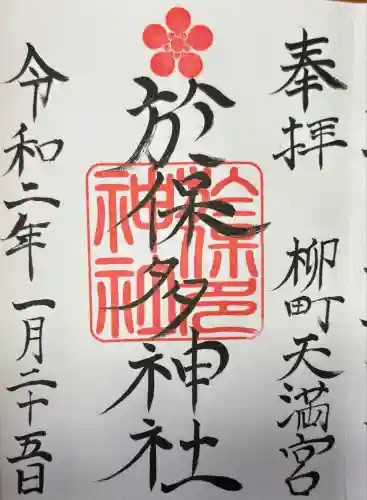 奉拝 柳町天満宮
於保多神社
令和二年一月二十五日
於保多
神社